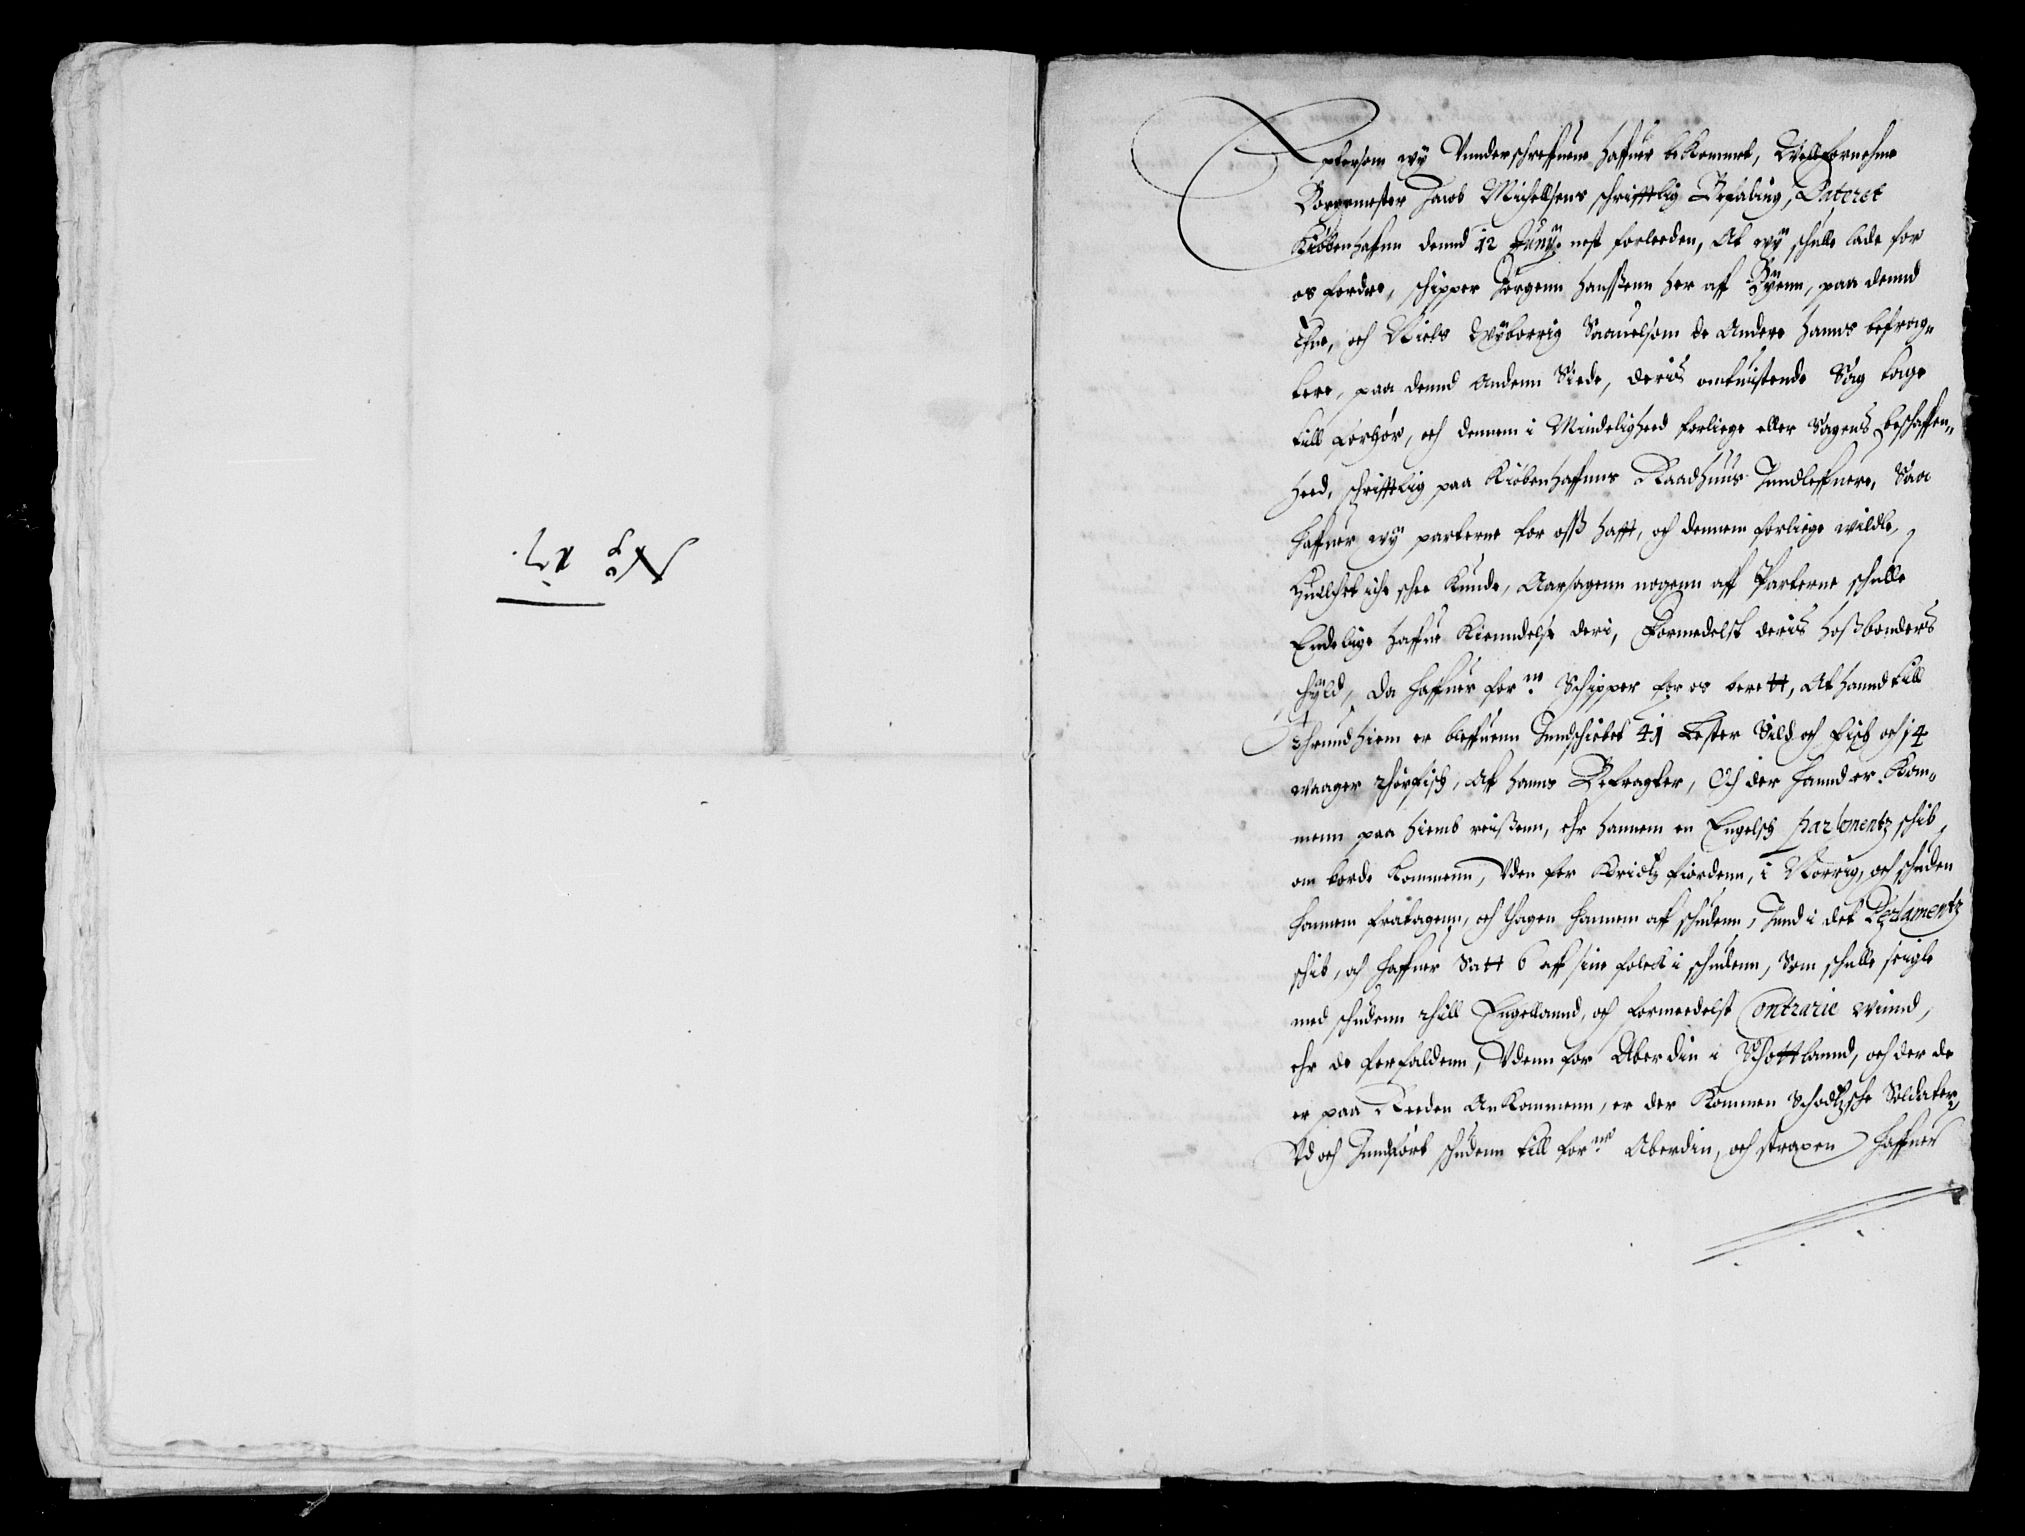 No 17.
Epftersom wÿ Vnderschreffuene haffuer bekommet, Welfornehme
Borgemester Jacob Michelsens schrifftlig Befaling, Dateret
Kiøbenhaffn dennd 12 Junÿ nest forleeden, At wÿ schulle lade for
os fordre, schipper Jørgenn Hanssenn her aff Bÿenn, paa dennd
Ehne, och Niels Wÿborrig Saauelsom de Andere hanns befrag-
tere, paa dennd Andenn Siede, deris omtuistende Sag tage
till Forhør, och dennem i Mindeligheed forliege eller Sagens beschaffen-
heed, schrifftlig paa Kiøbenhaffuns Raadhuus Inndleffuere, Saa
haffuer wÿ parterne for oss hafft, och dennem forliege wilde,
Huilchet iche schee kunde, Aarsagenn nogenn aff Parterne schulle
Endelige haffue Kienndelse deri, Formedelst deris Hosbonders
schÿld, Da haffuer forne Schipper for os berett, At hannd till
Thrundhiem er bleffuenn Inndschiebet 41 Lester Sild och Fisch och 14
waager thørfisch, Af hanns Befragter, Och der hannd er kom-
menn paa hiemb reissenn, ehr hannem en Engelsch parlementz schib
om borde kommenn, Vden for fiordenn, i Norrig, och schuden
hannem fratagenn, och thagen hannem aff schudenn, Innd i det Parlamentz
schib, och haffuer Satt 6 aff sine folck i schudenn, Som schulle seigle
med schudenn thill Engellannd, och formeedelst Contrarie winnd,
ehr de forfaldenn, Vdenn for Aberdin i Schottlannd, och der de
er paa Reeden Ankommenn, er der kommen Schodtzsche Soldater,
Vd och Inndført schudenn till forne Aberdin, och straxen haffuer